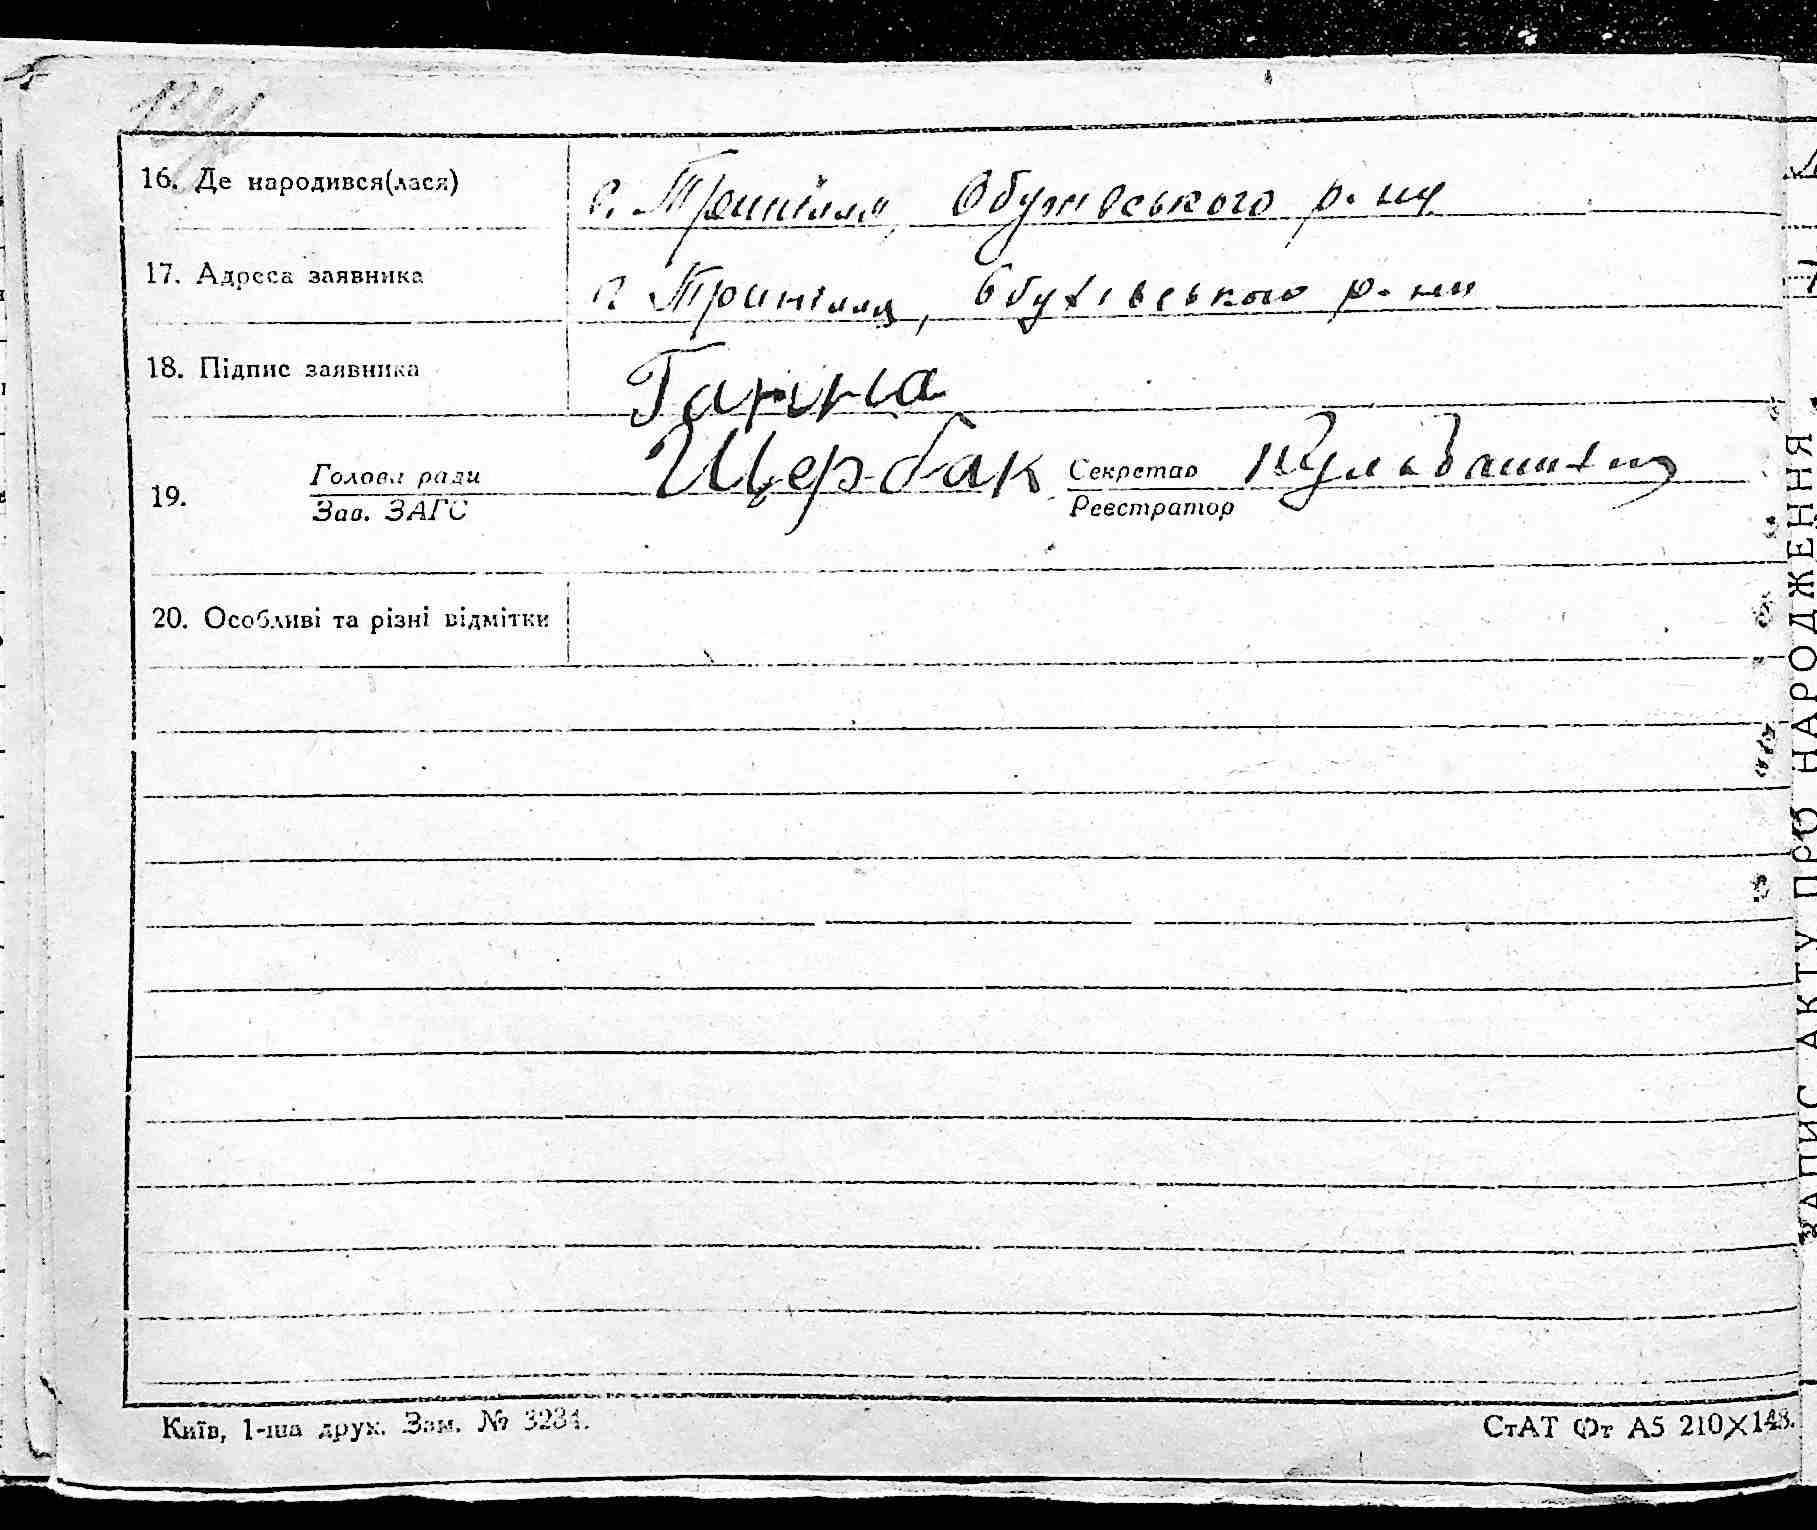 16. Де народився(лася) с. Трипілля, Обухівського р-ну
17. Адреса заявника с. Трипілля, Обухівського р-ну
18. Підпис заявника Ганна
19. Голова ради Щербак Секретар
Зав. ЗАГС Реєстратор
20. Особливі та різні відмітки
Київ, 1-ша друк. Зам. № 3234.
СтАТ Фт А5 210×148.
ЗАПИС АКТУ ПРО НАРОДЖЕННЯ